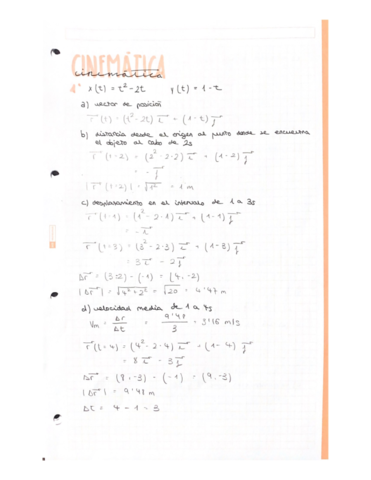 CINEMÁTICA
cinemática
1º x(t) = t² - 2t   y(t) = 1 - t
a) vector de posición
r(t) = (t² - 2t) i + (1 - t) j
b) distancia desde el origen al punto donde se encuentra
el objeto al cabo de 2s
r(t=2) = (2² - 2·2) i + (1 - 2) j
= - j
|r(t=2)| = √1² = 1 m
c) desplazamiento en el intervalo de 1 a 3s
r(t=1) = (1² - 2·1) i + (1 - 1) j
= - i
r(t=3) = (3² - 2·3) i + (1 - 3) j
= 3 i - 2 j
Δr = (3-2) - (-1) = (4, -2)
|Δr| = √4² + 2² = √20 = 4'47 m
d) velocidad media de 1 a 4s
Vm = Δr / Δt = 9'48 / 3 = 3'16 m/s
r(t=4) = (4² - 2·4) i + (1 - 4) j
= 8 i - 3 j
Δr = (8, -3) - (-1) = (9, -3)
|Δr| = 9'48 m
Δt = 4 - 1 = 3